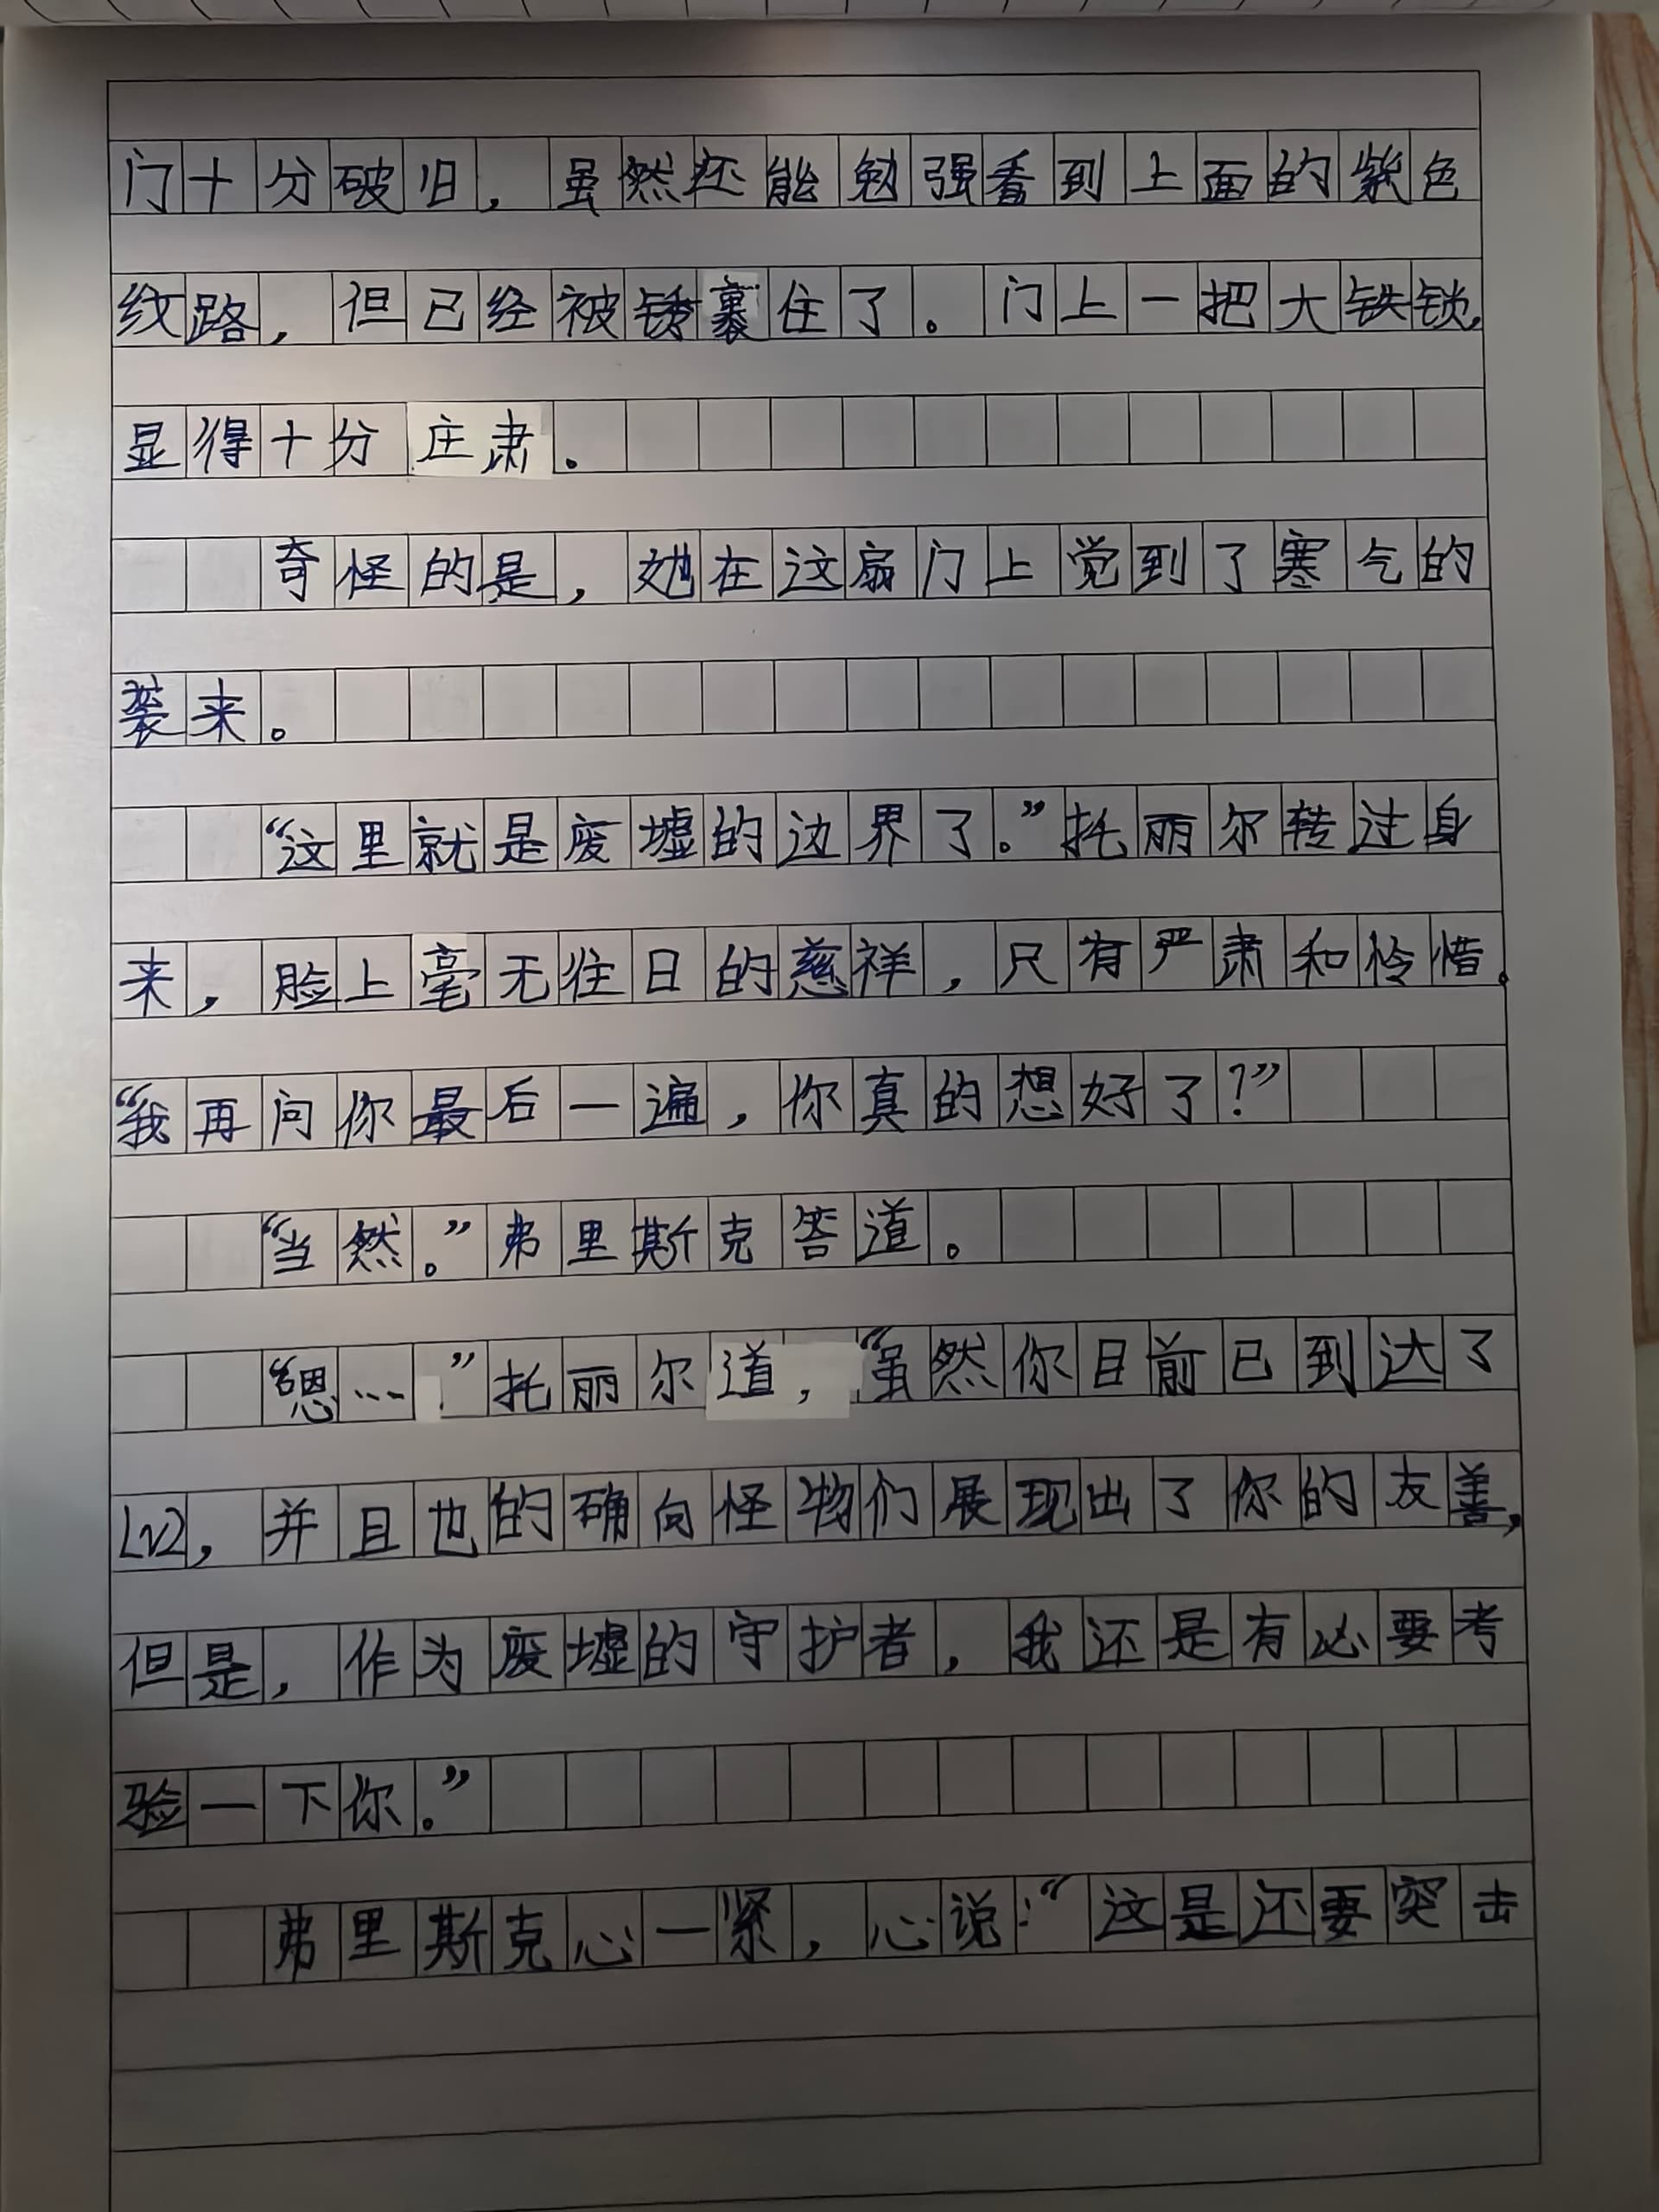 门十分破旧，虽然还能勉强看到上面的紫色
纹路，但已经被锈裹住了。门上一把大铁锁，
显得十分庄肃。
奇怪的是，她在这扇门上觉到了寒气的
袭来。
“这里就是废墟的边界了。”托丽尔转过身
来，脸上毫无往日的慈祥，只有严肃和怜惜。
“我再问你最后一遍，你真的想好了？”
“当然。”弗里斯克答道。
“嗯……”托丽尔道，“虽然你目前已到达了
LV2，并且也的确向怪物们展现出了你的友善，
但是，作为废墟的守护者，我还是有必要考
验一下你。”
弗里斯克心一紧，心说：“这是还要突击